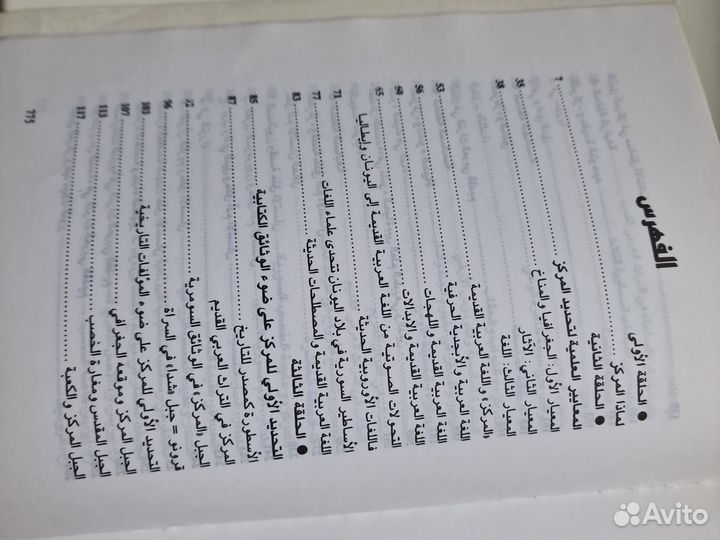 الفهرس
● الحلقة الأولى
لماذا المركز ........ 7
● الحلقة الثانية
المعايير العلمية لتحديد المركز
المعيار الأول: الجغرافيا والمناخ
المعيار الثاني: الآثار ........ 35
المعيار الثالث: اللغة ........ 38
«المركز» واللغة العربية القديمة ........ 53
اللغة العربية والأبجدية الحرفية ........ 56
اللغة العربية القديمة واللهجات ........ 60
اللغة العربية القديمة والإبدالات ........ 65
التحولات الصوتية من اللغة العربية القديمة إلى اليونان وإيطاليا
فاللغات الأوروبية الحديثة ........ 71
الأساطير السورية في بلاد اليونان تتحدى علماء اللغات ........ 77
اللغة العربية القديمة والمصطلحات الحديثة ........ 83
● الحلقة الثالثة
التحديد الأولي للمركز على ضوء الوثائق الكتابية ........ 85
الأسطورة كمصدر للتاريخ ........ 87
المركز في التراث العربي القديم
الجبل «المركز» في الوثائق السومرية ........ 92
قرونو = جبل شداء في السراة ........ 96
التحديد الأولي للمركز على ضوء المؤلفات التاريخية ........ 103
الجبل المركز وموقعه الجغرافي ........ 107
الجبل المقدس ومغارة الخصب ........ 113
الجبل المركز والكعبة ........ 117
775
Avito